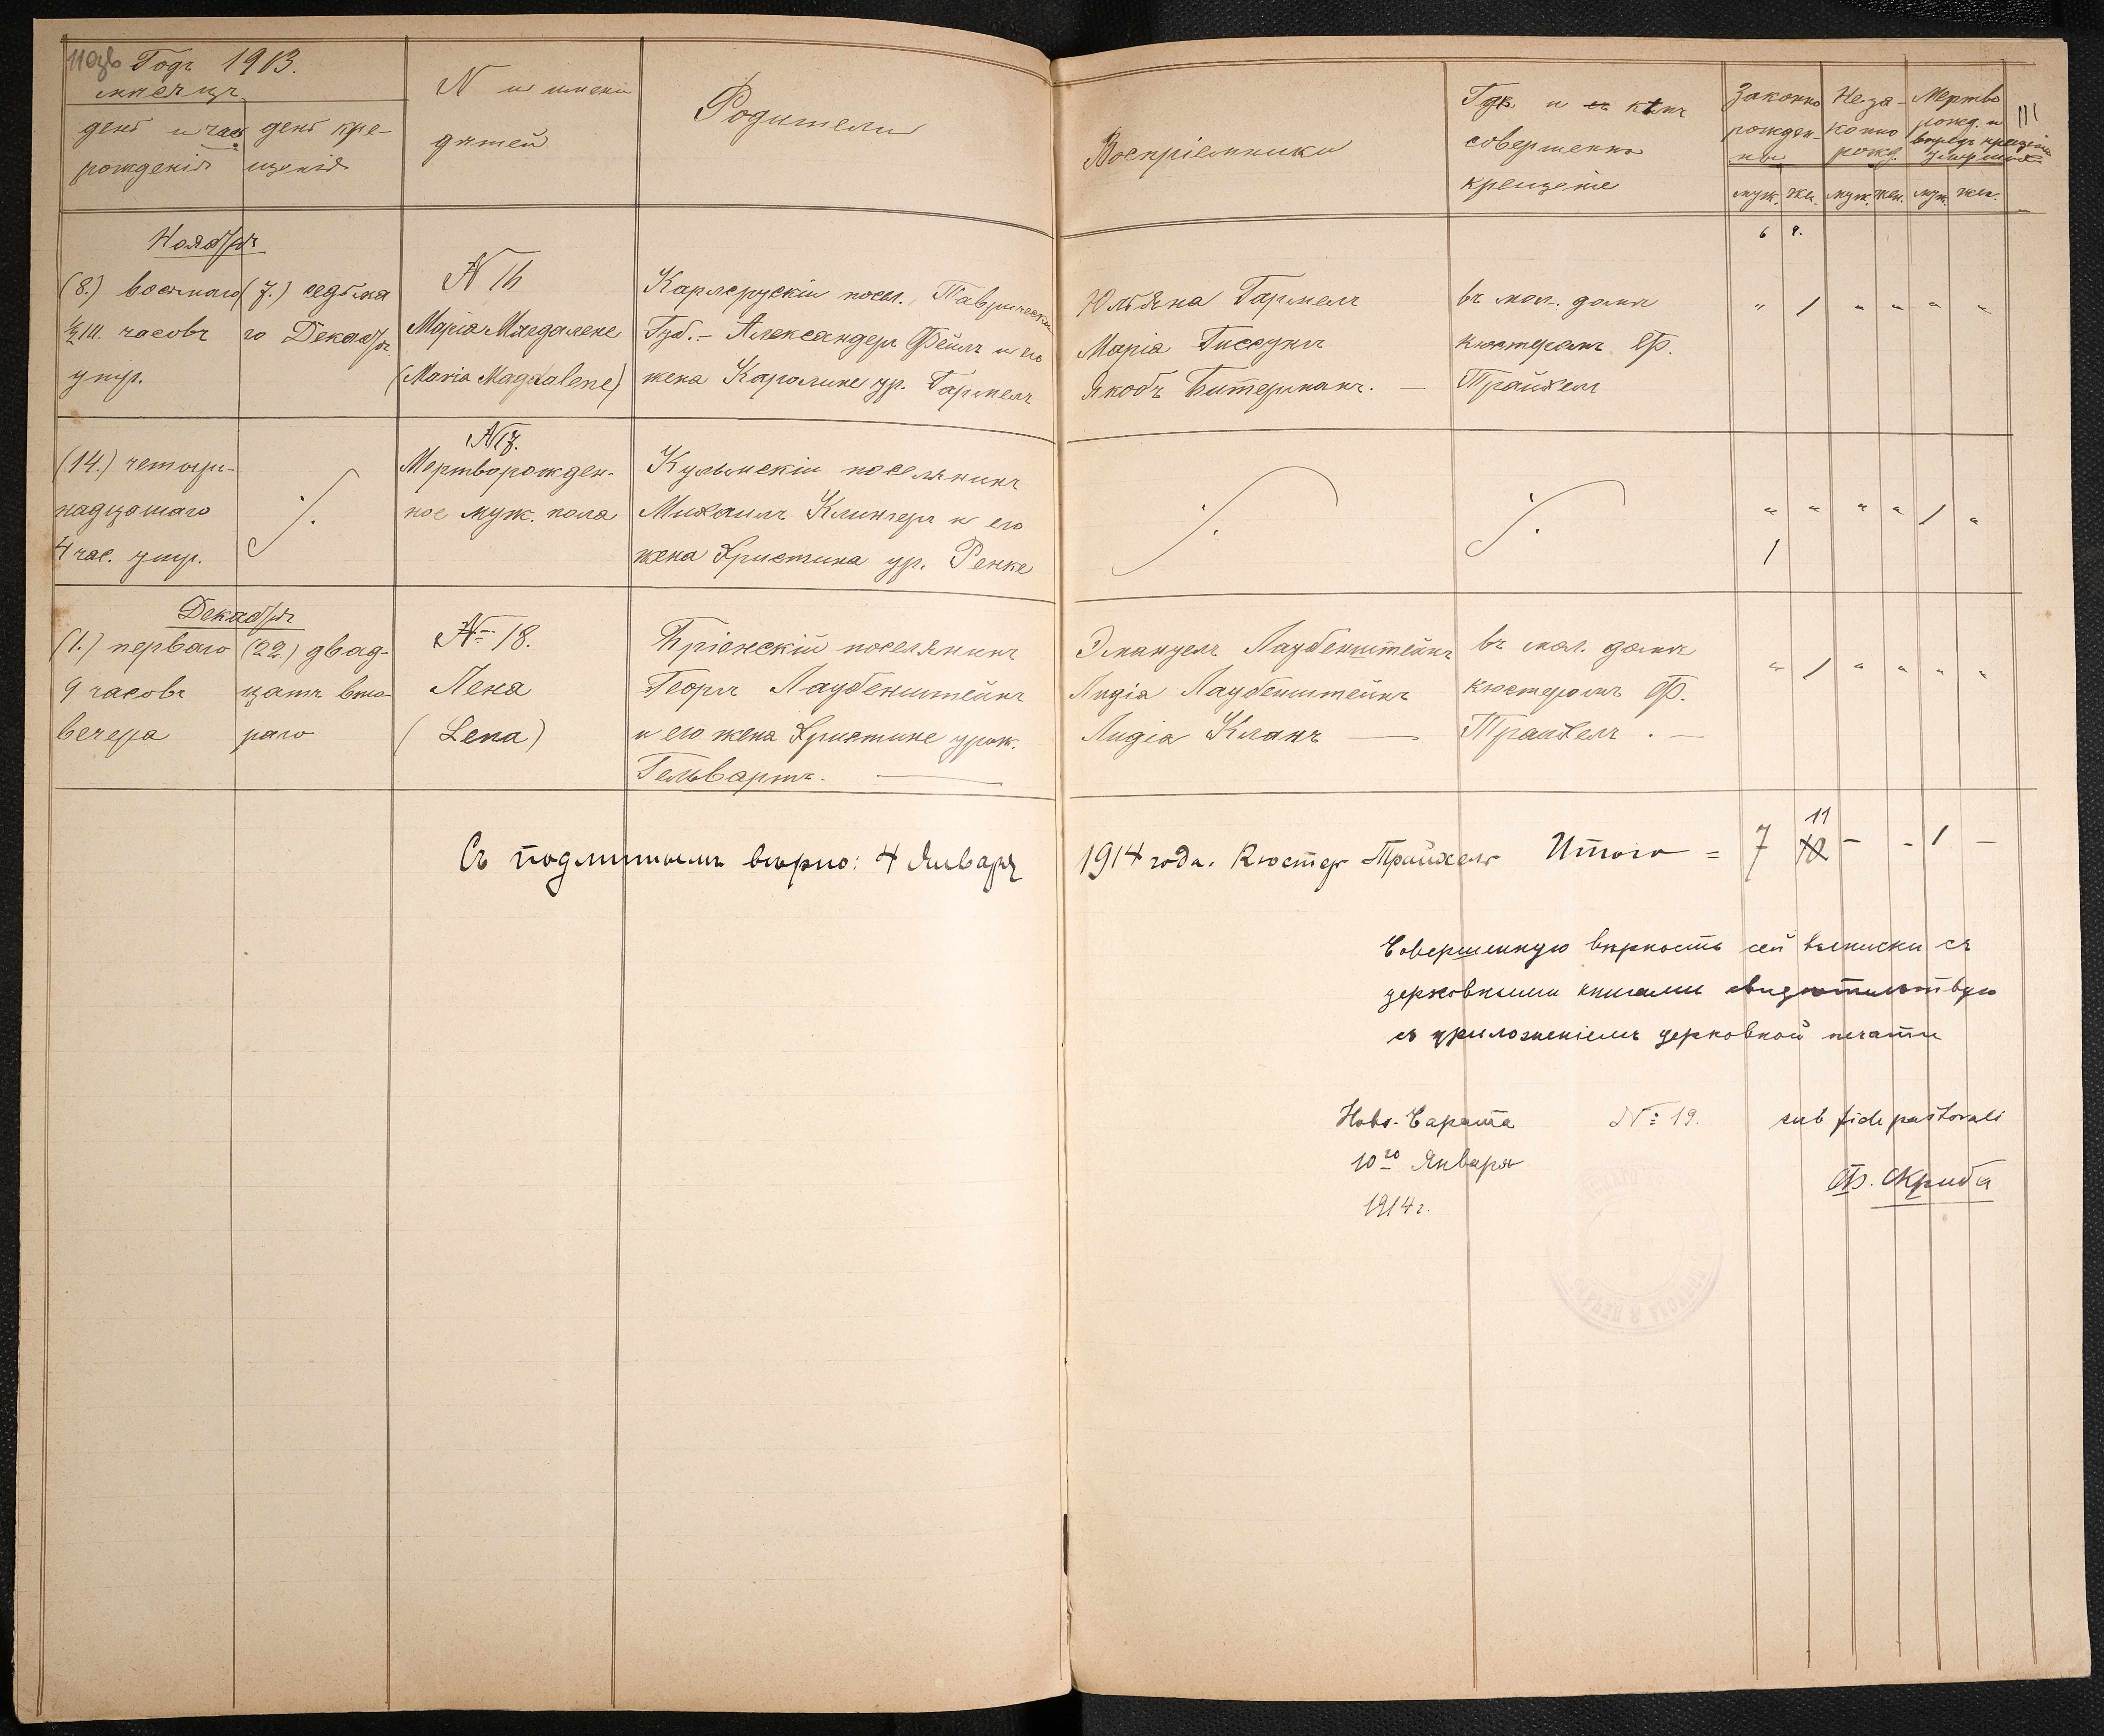 110об Годъ 1913.
мѣсяцъ
день и час
рожденія
день кре-
щенія
N и имени
дѣтей
Родители
Воспріемники
Гдѣ и кѣмъ
совершенно
крещеніе
Законно
рожден-
ны
Неза-
конно
рожд.
Мертво
рожд. и
впредъ крещенія
умершіе
111
муж. жен. муж. жен. муж. жен.
6 9.
Ноября
(8.) восьмаго
½ III. часовъ
утр.
(7.) седьма
го Декабря
N 16
Марія Магдалене
(Maria Magdalene)
Карлсрускій посел. Таврическ
Губ. – Александеръ Фейлъ и его
жена Каролине ур. Гармелъ
Юльяна Гармелъ
Марія Гиссунъ
Якобъ Битерманъ. —
въ мол. домѣ
кюстеромъ Ф.
Трайхелъ
" / " " " "
(14.) четыр-
надцатаго
4 час. утр.
N 17.
Мертворожден-
ное муж. пола
Кульмскій поселянинъ
Михаилъ Клингеръ и его
жена Христина ур. Ренке
" " " " / "
/
Декабря
(1.) перваго
9 часовъ
вечера
(22.) двад-
цать вто
раго
№ 18.
Лена
(Lena)
Бріенскій поселянинъ
Георгъ Лаубенштейнъ
и его жена Христине урож.
Гельвартъ. —
Эмануелъ Лаубенштейнъ
Лидіа Лаубенштейнъ
Лидіа Кланъ —
въ мол. домѣ
кюстеромъ Ф.
Трайхелъ. —
" / " " " "
Съ подлиннымъ вѣрно: 4 Января 1914 года. Кюстеръ Трайхелъ Итого = 7 11 10 - - 1 -
Совершенную вѣрность сей выписки съ
церковными книгами свидѣтельствую
съ приложеніемъ церковной печати
Ново-Сарата
10го Января
1914 г.
№ 19.
sub fide pastorali